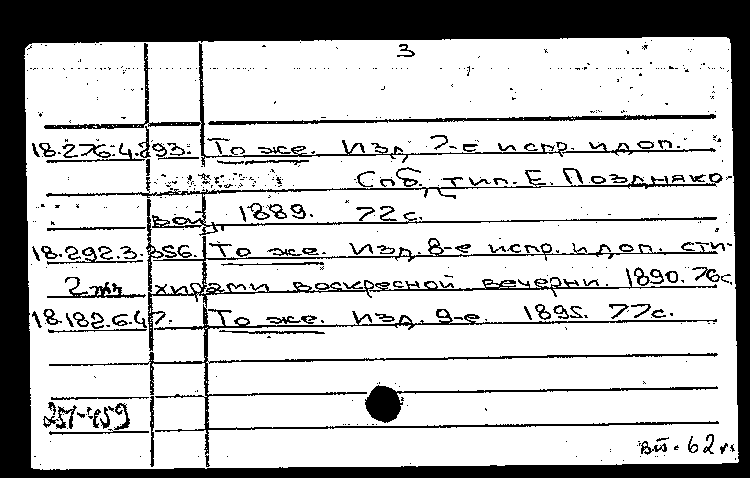 3
18.276.4.293. То же. Изд. 7-е испр. и доп.
Спб., тип. Е. Поздняко-
вой, 1889. 72 с.
18.292.3.356. То же. Изд. 8-е испр. и доп. сти-
2 экз хирами воскресной вечерни. 1890. 76с.
18.182.6.47. То же. Изд. 9-е. 1895. 77с.
257-459
62 г.